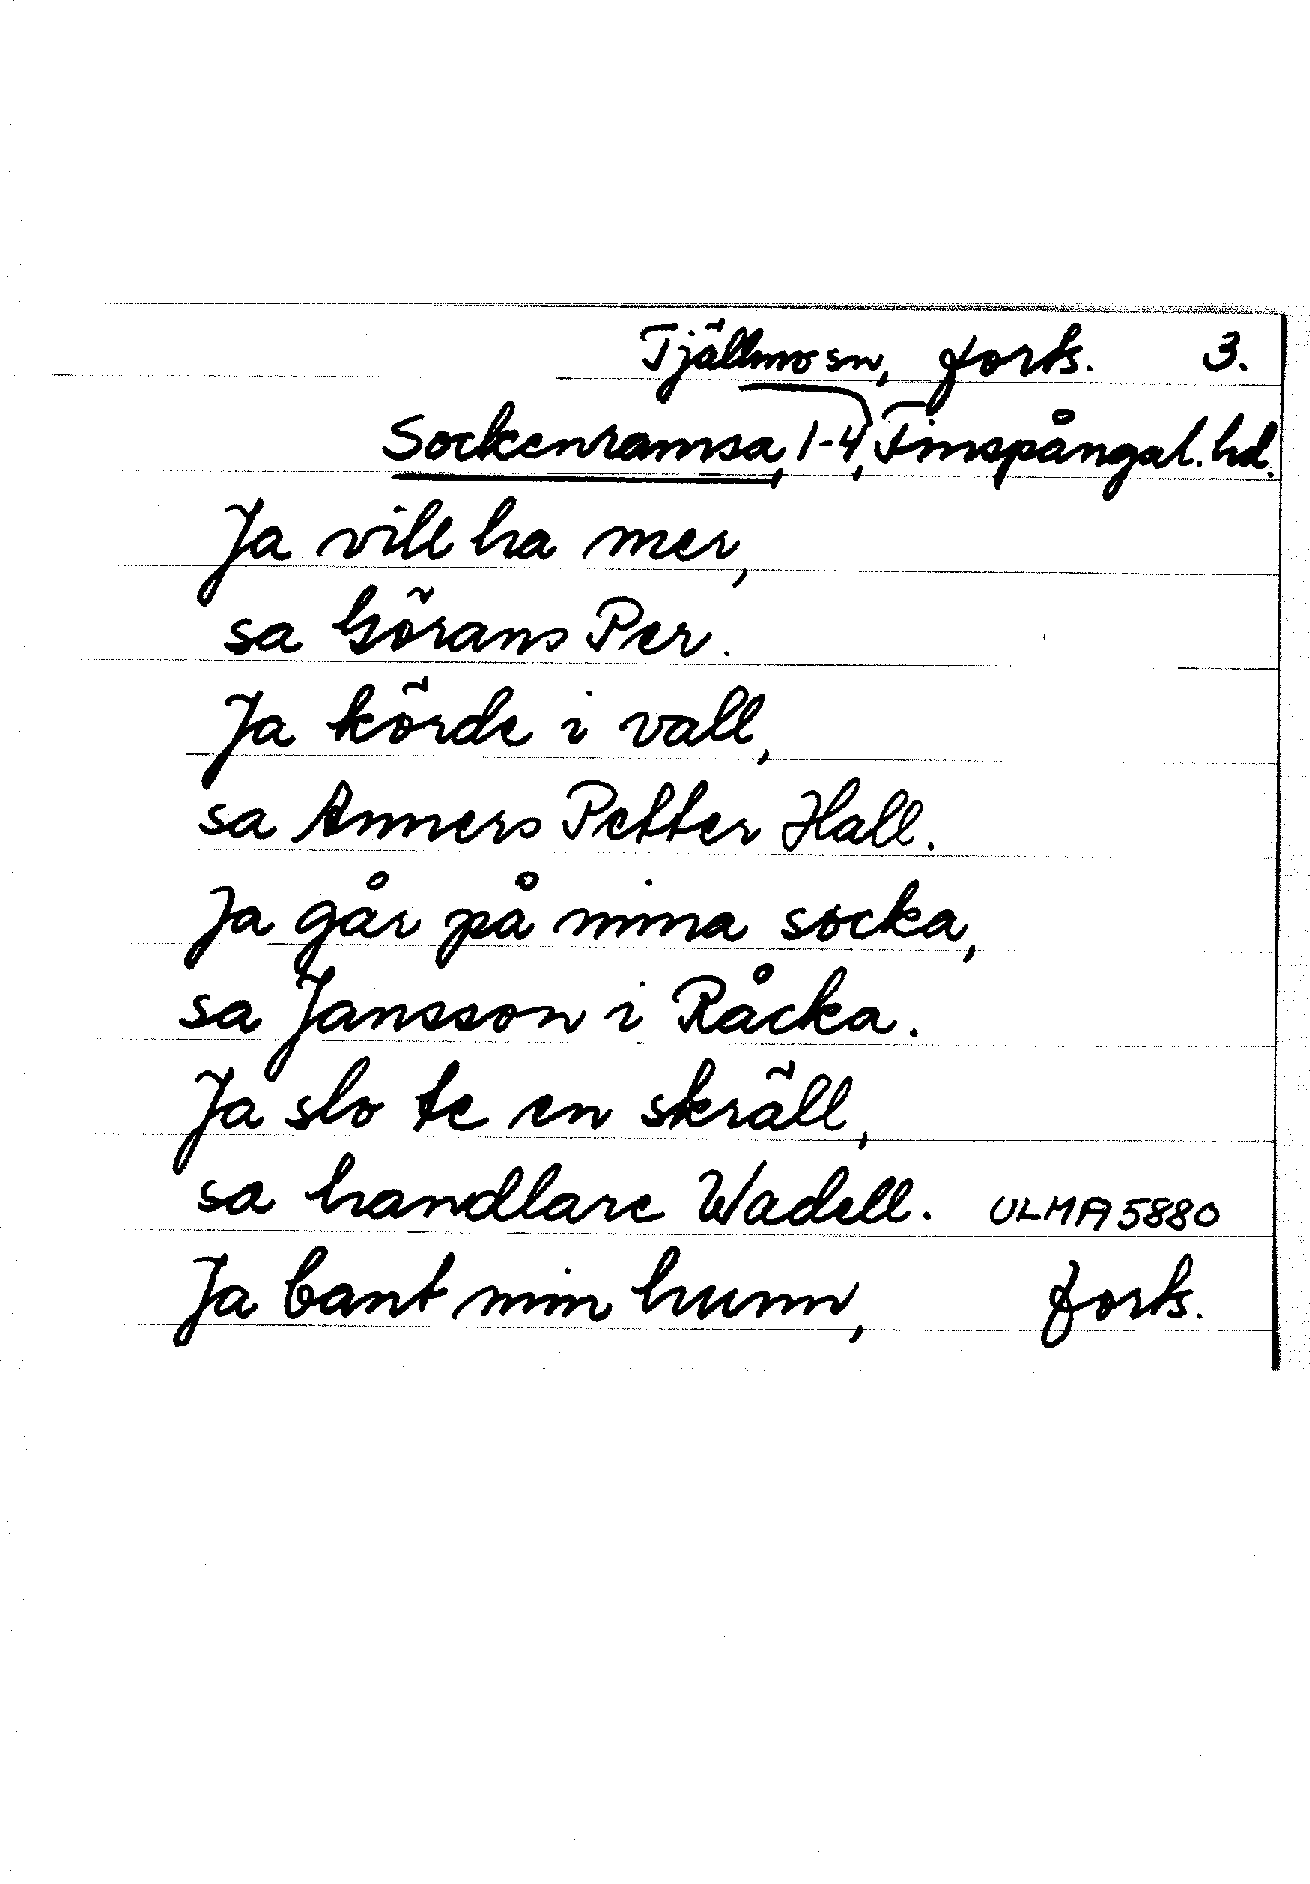 Tjällmo sn, forts. 3.
Sockenramsa, 1-4, Finspångal. hd.
Ja vill ha mer,
sa Görans Per.
Ja körde i vall,
sa Anners Petter Hall.
Ja går på mina socka,
sa Jansson i Råcka.
Ja slo te en skräll,
sa handlare Wadell. ULMA 5880
Ja bant min hunn, forts.